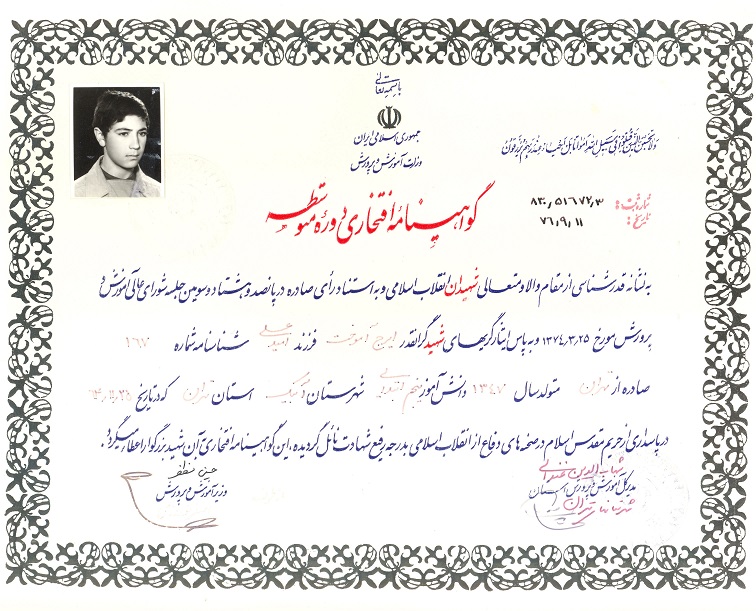 باسمه تعالی
جمهوری اسلامی ایران
وزارت آموزش و پرورش
ولا تحسبن الذین قتلوا فی سبیل الله امواتا بل احیاء عند ربهم یرزقون
شماره ثبت: ۸۳۰٫۵۱۶۷۲٫۳
تاریخ: ۷۶٫۹٫۱۱
گواهینامه افتخاری دوره متوسطه
به نشانه قدرشناسی از مقام والا و متعالی شهیدان انقلاب اسلامی و به استناد رأی صادره در پانصد و هشتاد و سومین جلسه شورای عالی آموزش و
پرورش مورخ ۱۳۷۴٫۳٫۲۵ و به پاس ایثارگریهای شهید گرانقدر ایرج فرزند شناسنامه شماره ۱۶۷
صادره از تهران متولد سال ۱۳۴۷ دانش آموز پنجم ابتدایی شهرستان استان تهران که در تاریخ
در پاسداری از حریم مقدس اسلام در صحنه های دفاع از انقلاب اسلامی بدرجه رفیع شهادت نائل گردیده، این گواهینامه افتخاری آن شهید بزرگوار اعطا میگردد.
شهاب الدین
مدیر کل آموزش و پرورش استان
شهرستانهای تهران
حسین مظفر
وزیر آموزش و پرورش